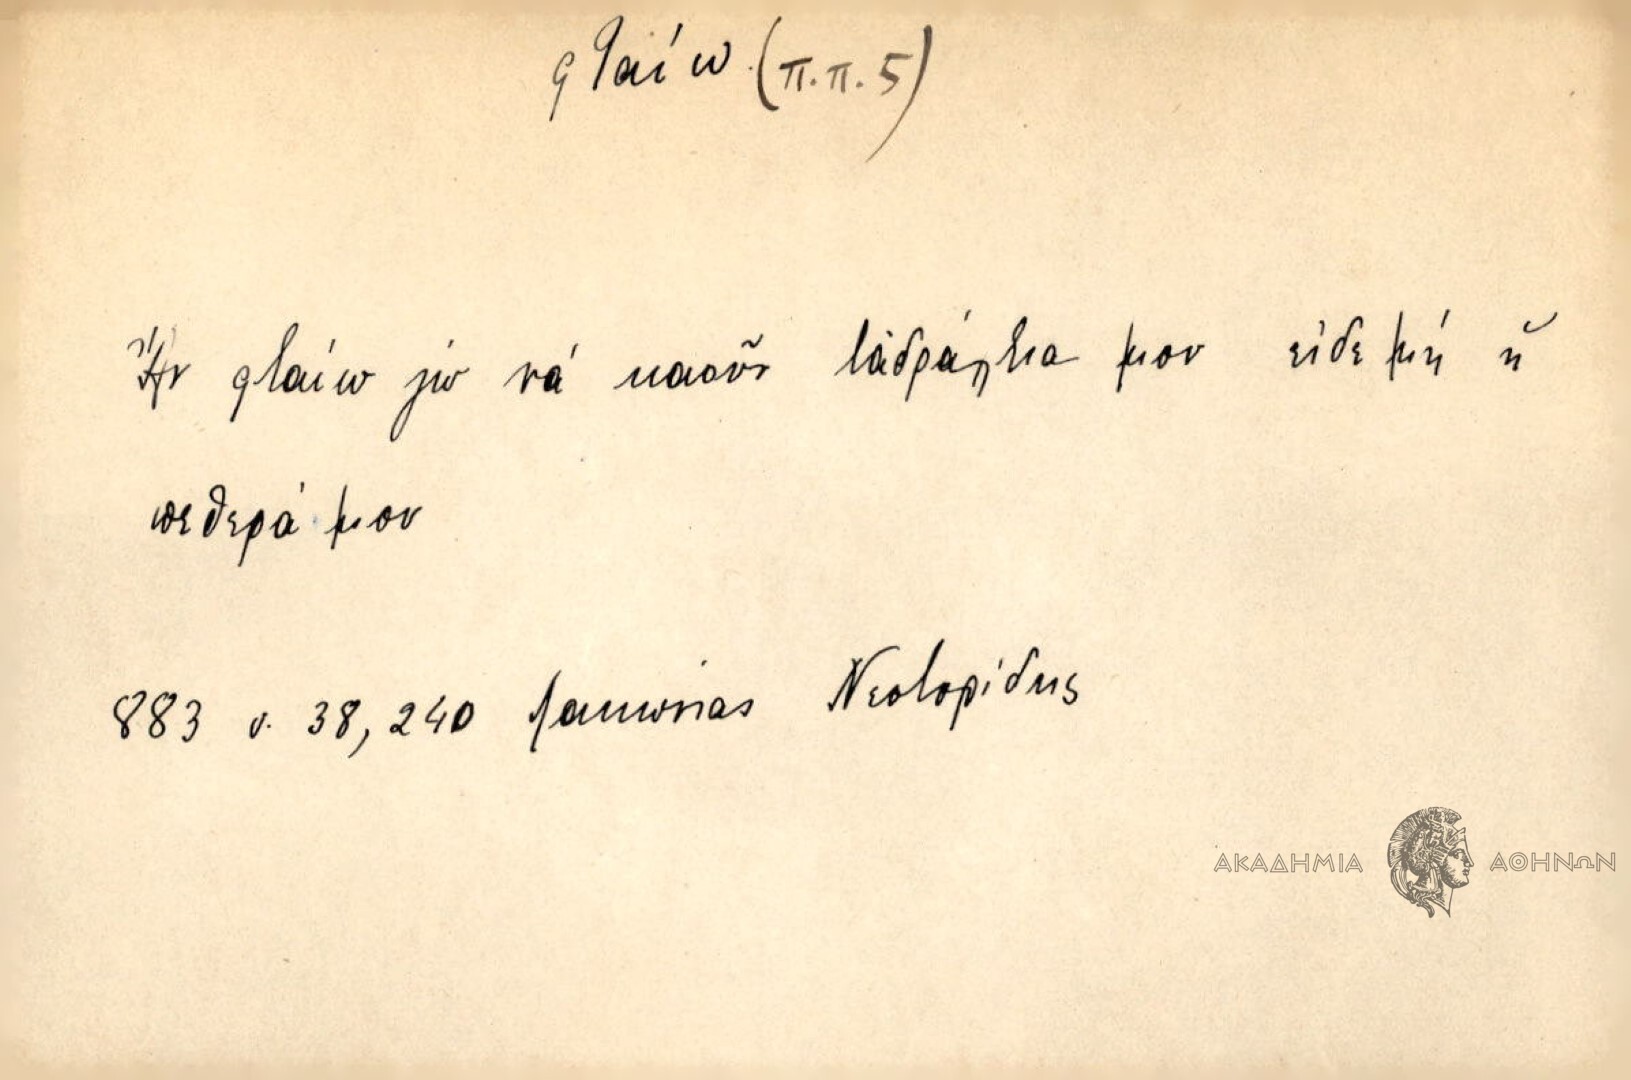 φταίω (π.π. 5)
Ἄν φταίω γὼ νά καοῦν τἀδράχτια μου εἰδεμή ἡ
πεθερά μου
883 σ. 38, 240 Λακωνίας Νεστορίδης
ΑΚΑΔΗΜΙΑ ΑΘΗΝΩΝ